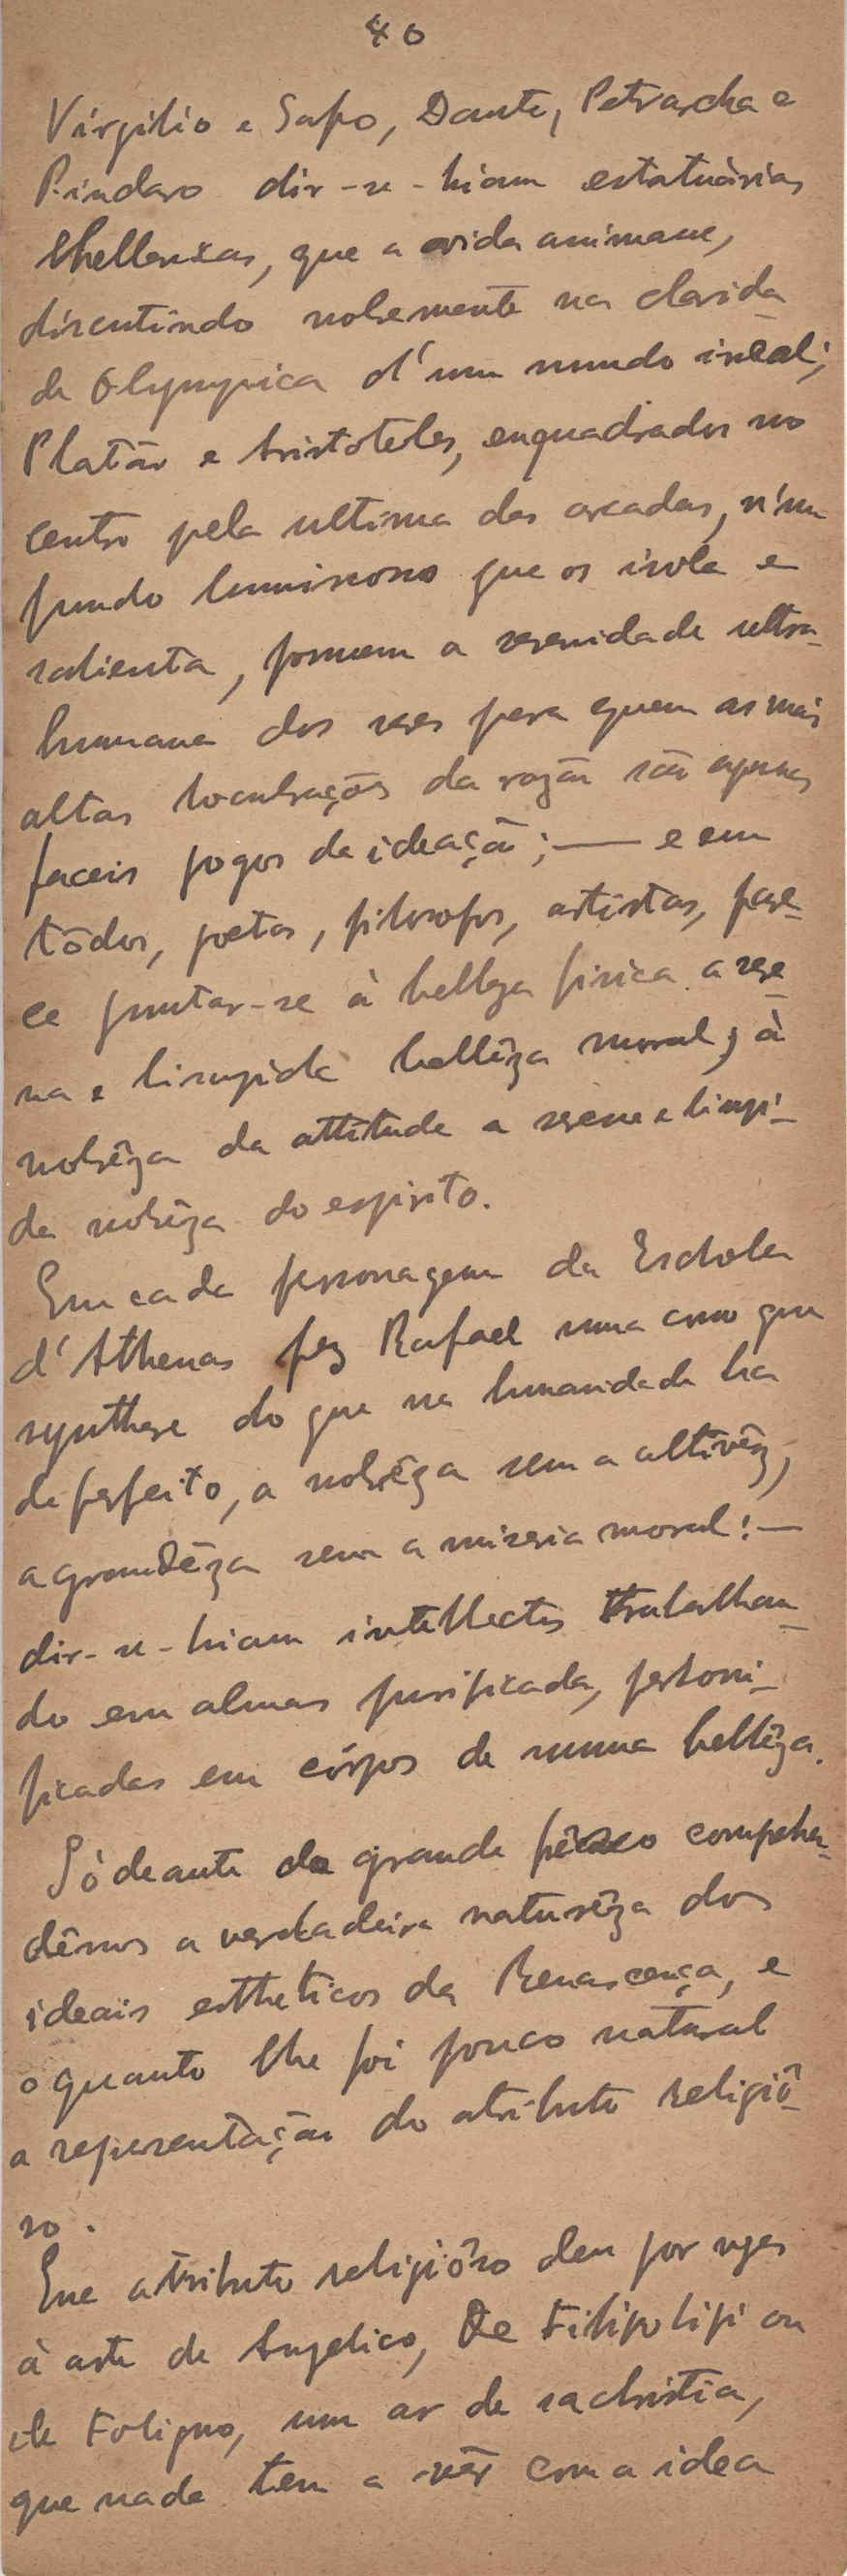 40
Virgilio e Safo, Dante, Petrarcha e
Pindaro dir-se-hiam estatuárias
hellenicas, que a vida animasse,
discutindo nobremente na clarida
de Olympica d'um mundo ideal;
Platão e Aristoteles, enquadrados no
centro pela ultima das arcadas, n'um
fundo luminoso que os isola e
salienta, possuem a serenidade ultra-
humana dos seres para quem as mais
altas locubrações da razão são apenas
faceis jogos da ideação; — e em
tôdos, poetas, filosofos, artistas, pare-
ce juntar-se à belleza fisica a sere-
na e limpida bellêza moral; à
nobrêza da attitude a serena e limpi-
da nobrêza do espirito.
Em cada personagem da Eschola
d'Athenas fez Rafael uma como que
synthese do que na humanidade ha
de perfeito, a nobrêza sem a altivêz,
a grandêza sem a miseria moral: —
dir-se-hiam intellectos trabalhan-
do em almas purificadas, personi-
ficadas em córpos de summa bellêza.
Só deante do grande frêsco comprehen-
dêmos a verdadeira naturêza dos
ideais estheticos da Renascença, e
o quanto lhe foi pouco natural
a representação do atributo religiô-
so.
Esse atributo religiôso deu por vezes
à arte de Angelico, de Filipo Lipi ou
de Foligno, um ar de sachristia,
que nada tem a vêr com a idea